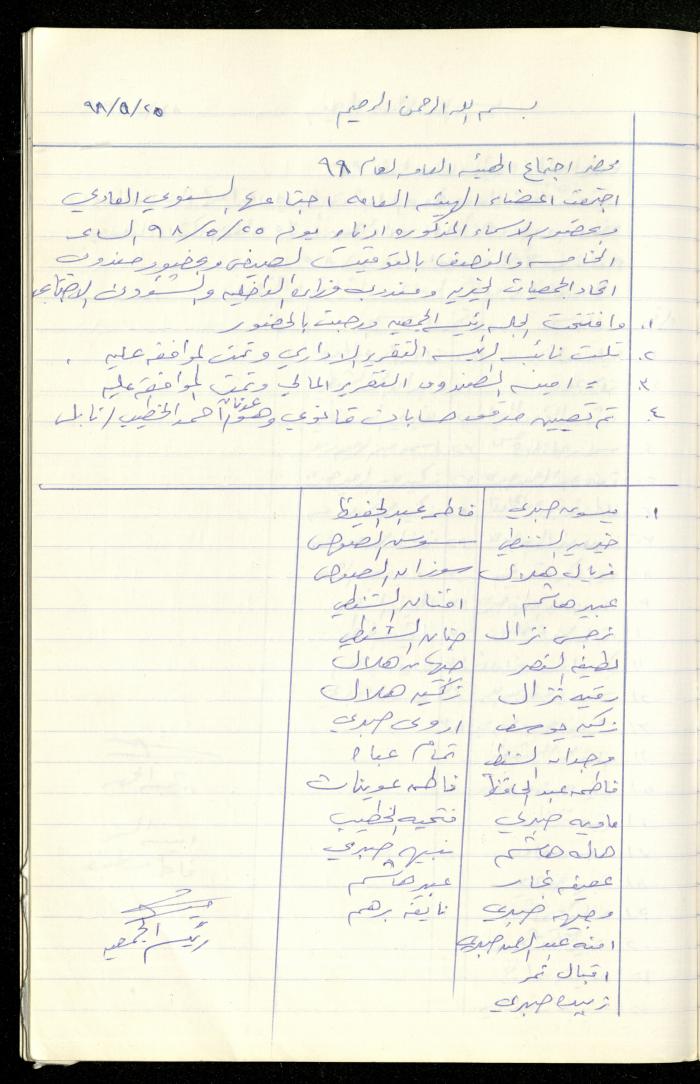 بسم الله الرحمن الرحيم ٩٨/٥/٢٥
محضر اجتماع الهيئه العامه لعام ٩٨
اجتمعت اعضاء الهيئه العامه اجتماعها السنوي العادي
وبحضور الاسماء المذكوره ادناه يوم ٩٨/٥/٢٥ الساعه
الخامسه والنصف بالتوقيت الصيفي وبحضور مندوب
اتحاد الجمعيات الخيريه ومندوب وزارة الداخليه والشؤون الاجتماعيه
١. وافتتحت الجلسه رئيسة الجمعيه ورحبت بالحضور
٢. تلت نائبه الرئيسه التقرير الاداري وتمت الموافقه عليه .
٣. = امينه الصندوق التقرير المالي وتمت الموافقه عليه
٤. تم تعيين مدقق حسابات قانوني وهو عدنان احمد الخطيب / نابلس
١. ميسون صبري فاطمه عبد الحفيظ
خيريه الشنطي سوسن
فريال هلال سوزان
عبير هاشم افتنان الشنطي
نرجس نزال حنان الشنطي
لطيفه النصر جيهان هلال
رقيه نزال زكيه هلال
زكيه يوسف اروى صبري
وجدان الشنطي تمام
فاطمه عبد الحافظ فاطمه عوينات
ماويه صبري فتحيه الخطيب
هاله هاشم نبيهه صبري
عفيفه عبير هاشم
وجيهه صبري نايفه برهم
امنه عبد الرحمن صبري
اقبال نمر
زبيده صبري
رئيسة الجمعيه